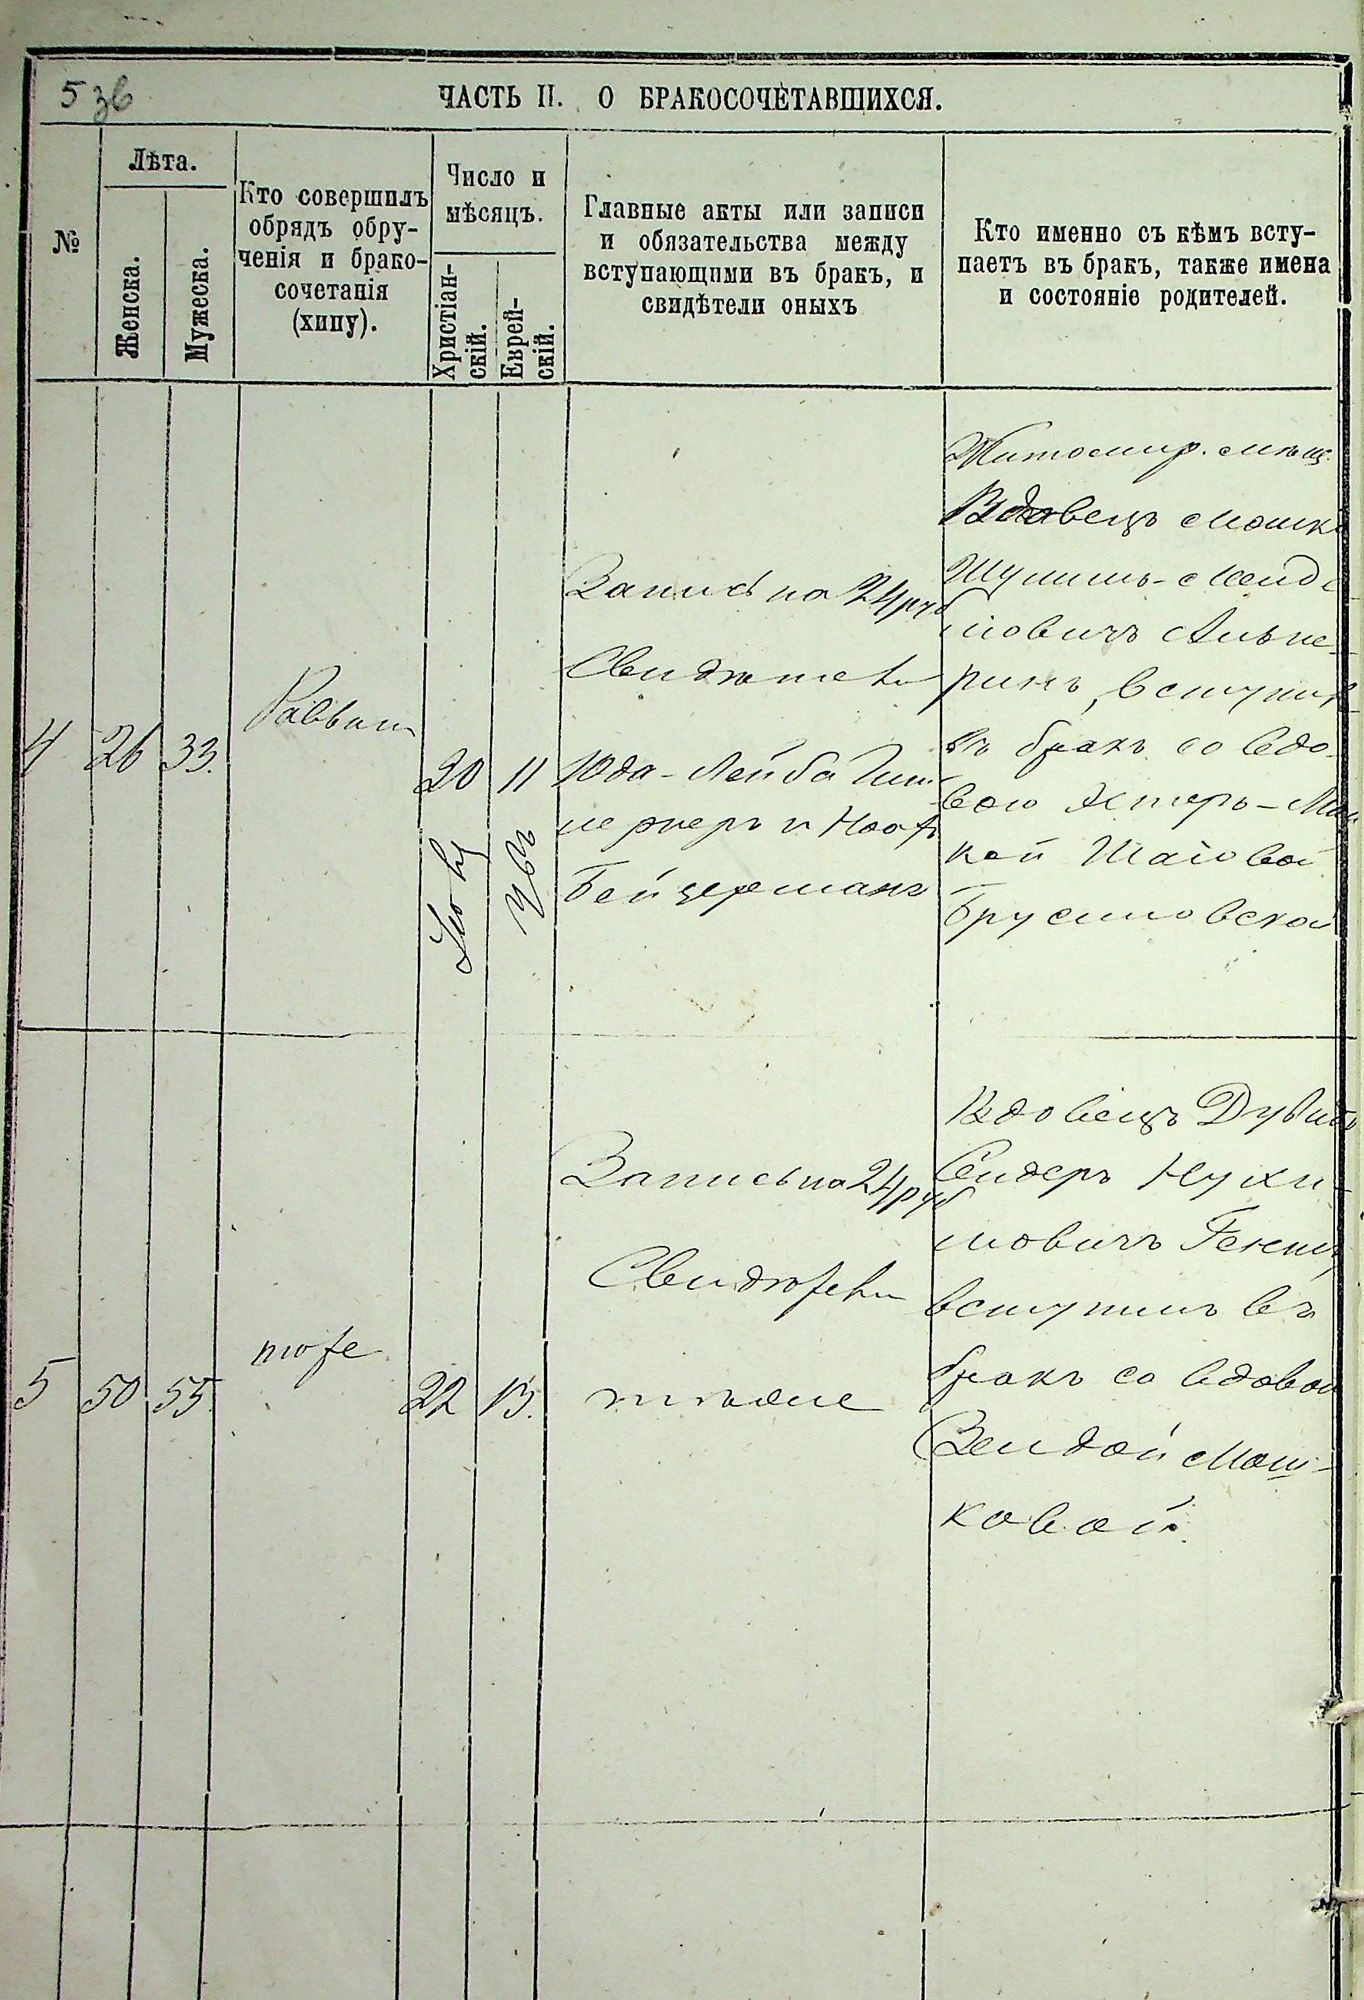 5 зв
ЧАСТЬ II. О БРАКОСОЧЕТАВШИХСЯ.
№
Лѣта.
Женска.
Мужеска.
Кто совершилъ
обрядъ обру-
ченія и брако-
сочетанія
(хипу).
Число и
мѣсяцъ.
Христіан-
скій.
Еврей-
скій.
Главные акты или записи
и обязательства между
вступающими въ бракъ, и
свидѣтели оныхъ
Кто именно съ кѣмъ всту-
паетъ въ бракъ, также имена
и состояніе родителей.
4
26
33.
Раввин
20
11
Запись на 24 руб
Свидѣтели
Юда-Лейба
и
Бейдерманъ
Житомир. мѣщ.
Вдовецъ Мошко
Шулимъ-Менде
лiовичъ Альпе-
ринъ, вступил
въ бракъ со вдо-
вою Эстеръ-Мал
кой Шаiовой
Брусиловской
5
50
55.
тоже
22
13.
Запись на 24 руб
Свидѣтели
тѣже
Вдовецъ Дувидъ
Сендеръ Нухи-
мовичъ
вступилъ въ
бракъ со вдовой
Зельдой Мош-
ковой.